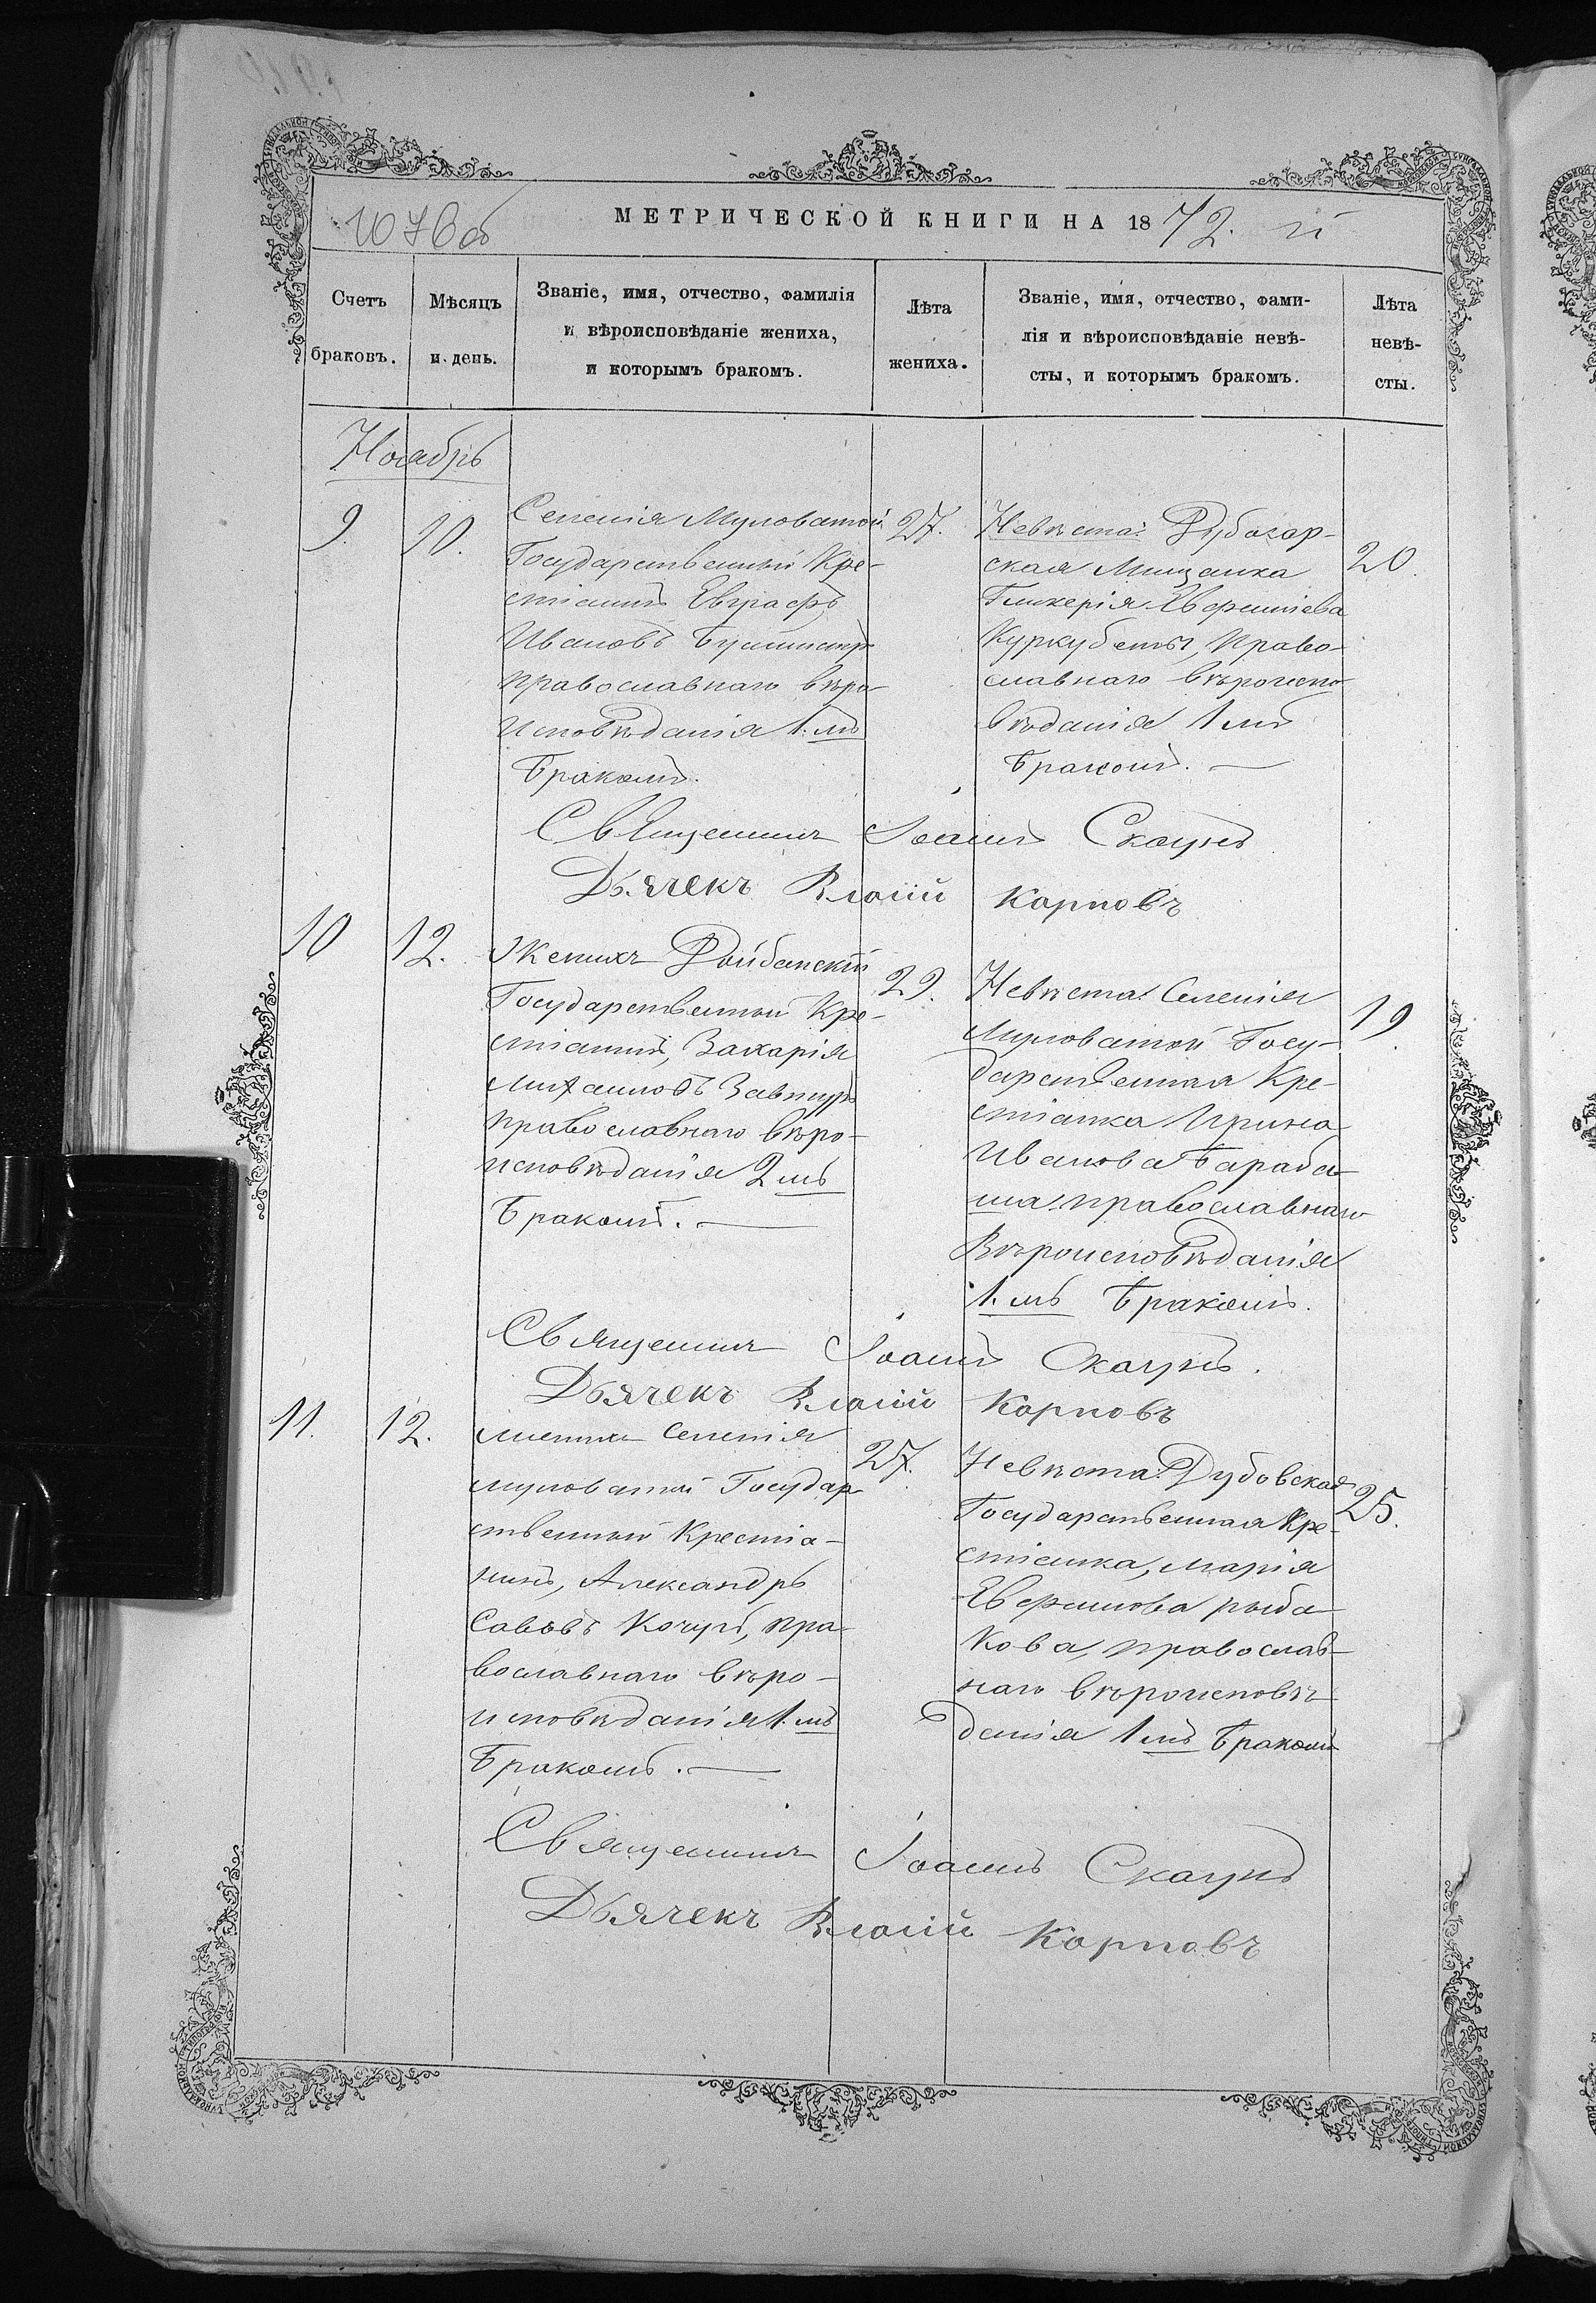 1076 об
МЕТРИЧЕСКОЙ КНИГИ НА 1872. й
Счетъ браковъ.
Мѣсяцъ и день.
Званіе, имя, отчество, фамилія
и вѣроисповѣданіе жениха,
и которымъ бракомъ.
Лѣта
жениха.
Званіе, имя, отчество, фами-
лія и вѣроисповѣданіе невѣ-
сты, и которымъ бракомъ.
Лѣта
невѣ-
сты.
Ноябрь
9. 10.
Селенія Муловатой
Государственный Кре-
стіанинъ Евграфъ
Ивановъ
православнаго вѣро-
исповѣданія 1.мъ
бракомъ.
27.
Невѣста: Дубосар-
ская Мищанка
Гликерія Евфиміева
Куркубетъ, право-
славнаго вѣроиспо-
вѣданія 1мъ
бракомъ. —
20.
Священникъ Іоаннъ Скаунъ
Дьячекъ Власій Карповъ
10 12.
Женихъ Дойбанскій
Государственный Кре-
стіанинъ, Захарія
Михаиловъ Завтуръ
православнаго вѣро-
исповѣданія 2мъ
бракомъ. —
29.
Невѣста: Селенія
Муловатой Госу-
дарственная Кре-
стіанка Ирина
Иванова Бараба-
ша православнаго
Вѣроисповѣданія
1.мъ бракомъ.
19.
Священникъ Іоаннъ Скаунъ.
Дьячекъ Власій Карповъ
11. 12.
Женихъ Селенія
Муловатой Государ
ственный Крестіа-
нинъ, Александръ
Савовъ Кочугъ, пра-
вославнаго вѣро-
исповѣданія 1.мъ
бракомъ. —
27.
Невѣста: Дубовская
Государственная Кре-
стіанка, Марія
Евфимова рыба-
кова, православ-
наго вѣроисповѣ-
данія 1мъ бракомъ
25.
Священникъ Іоаннъ Скаунъ
Дьячекъ Власій Карповъ